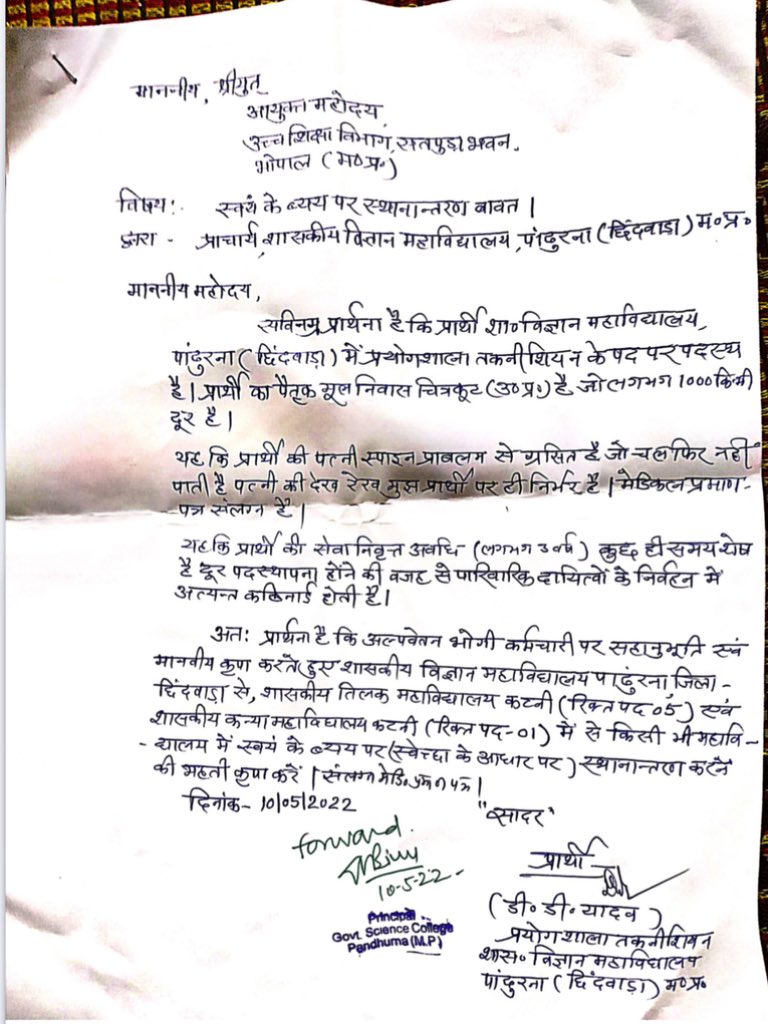 माननीय, श्रीयुत्
आयुक्त महोदय
उच्च शिक्षा विभाग, सतपुड़ा भवन,
भोपाल (म०प्र०)
विषय:- स्वयं के व्यय पर स्थानान्तरण बावत।
द्वारा - प्राचार्य, शासकीय विज्ञान महाविद्यालय, पांढुरना (छिंदवाड़ा) म०प्र०
माननीय महोदय,
सविनय प्रार्थना है कि प्रार्थी शा० विज्ञान महाविद्यालय,
पांढुरना (छिंदवाड़ा) में प्रयोगशाला तकनीशियन के पद पर पदस्थ
है। प्रार्थी का पैतृक मूल निवास चित्रकूट (उ०प्र०) है जो लगभग 1000 कि.मी
दूर है।
यह कि प्रार्थी की पत्नी स्पाइन प्राबलम से ग्रसित है जो चल फिर नहीं
पाती है पत्नी की देख रेख मुझ प्रार्थी पर ही निर्भर है। मेडिकल प्रमाण-
पत्र संलग्न है।
यह कि प्रार्थी की सेवा निवृत्त अवधि (लगभग 3 वर्ष) कुछ ही समय शेष
है दूर पदस्थापना होने की वजह से पारिवारिक दायित्वों के निर्वहन में
अत्यन्त कठिनाई होती है।
अतः प्रार्थना है कि अल्पवेतन भोगी कर्मचारी पर सहानुभूति एवं
मानवीय कृपा करते हुए शासकीय विज्ञान महाविद्यालय पांढुरना जिला-
छिंदवाड़ा से, शासकीय तिलक महाविद्यालय कटनी (रिक्त पद-05) एवं
शासकीय कन्या महाविद्यालय कटनी (रिक्त पद-01) में से किसी भी महावि-
-द्यालय में स्वयं के व्यय पर (स्वेच्छा के आधार पर) स्थानान्तरण करने
की महती कृपा करें। संलग्न मेडि.
दिनांक- 10/05/2022
"सादर"
forward
10-5-22
प्रार्थी
Principal
Govt. Science College
Pandhurna (M.P)
(डी० डी० यादव)
प्रयोगशाला तकनीशियन
शास० विज्ञान महाविद्यालय
पांढुरना (छिंदवाड़ा) म०प्र०